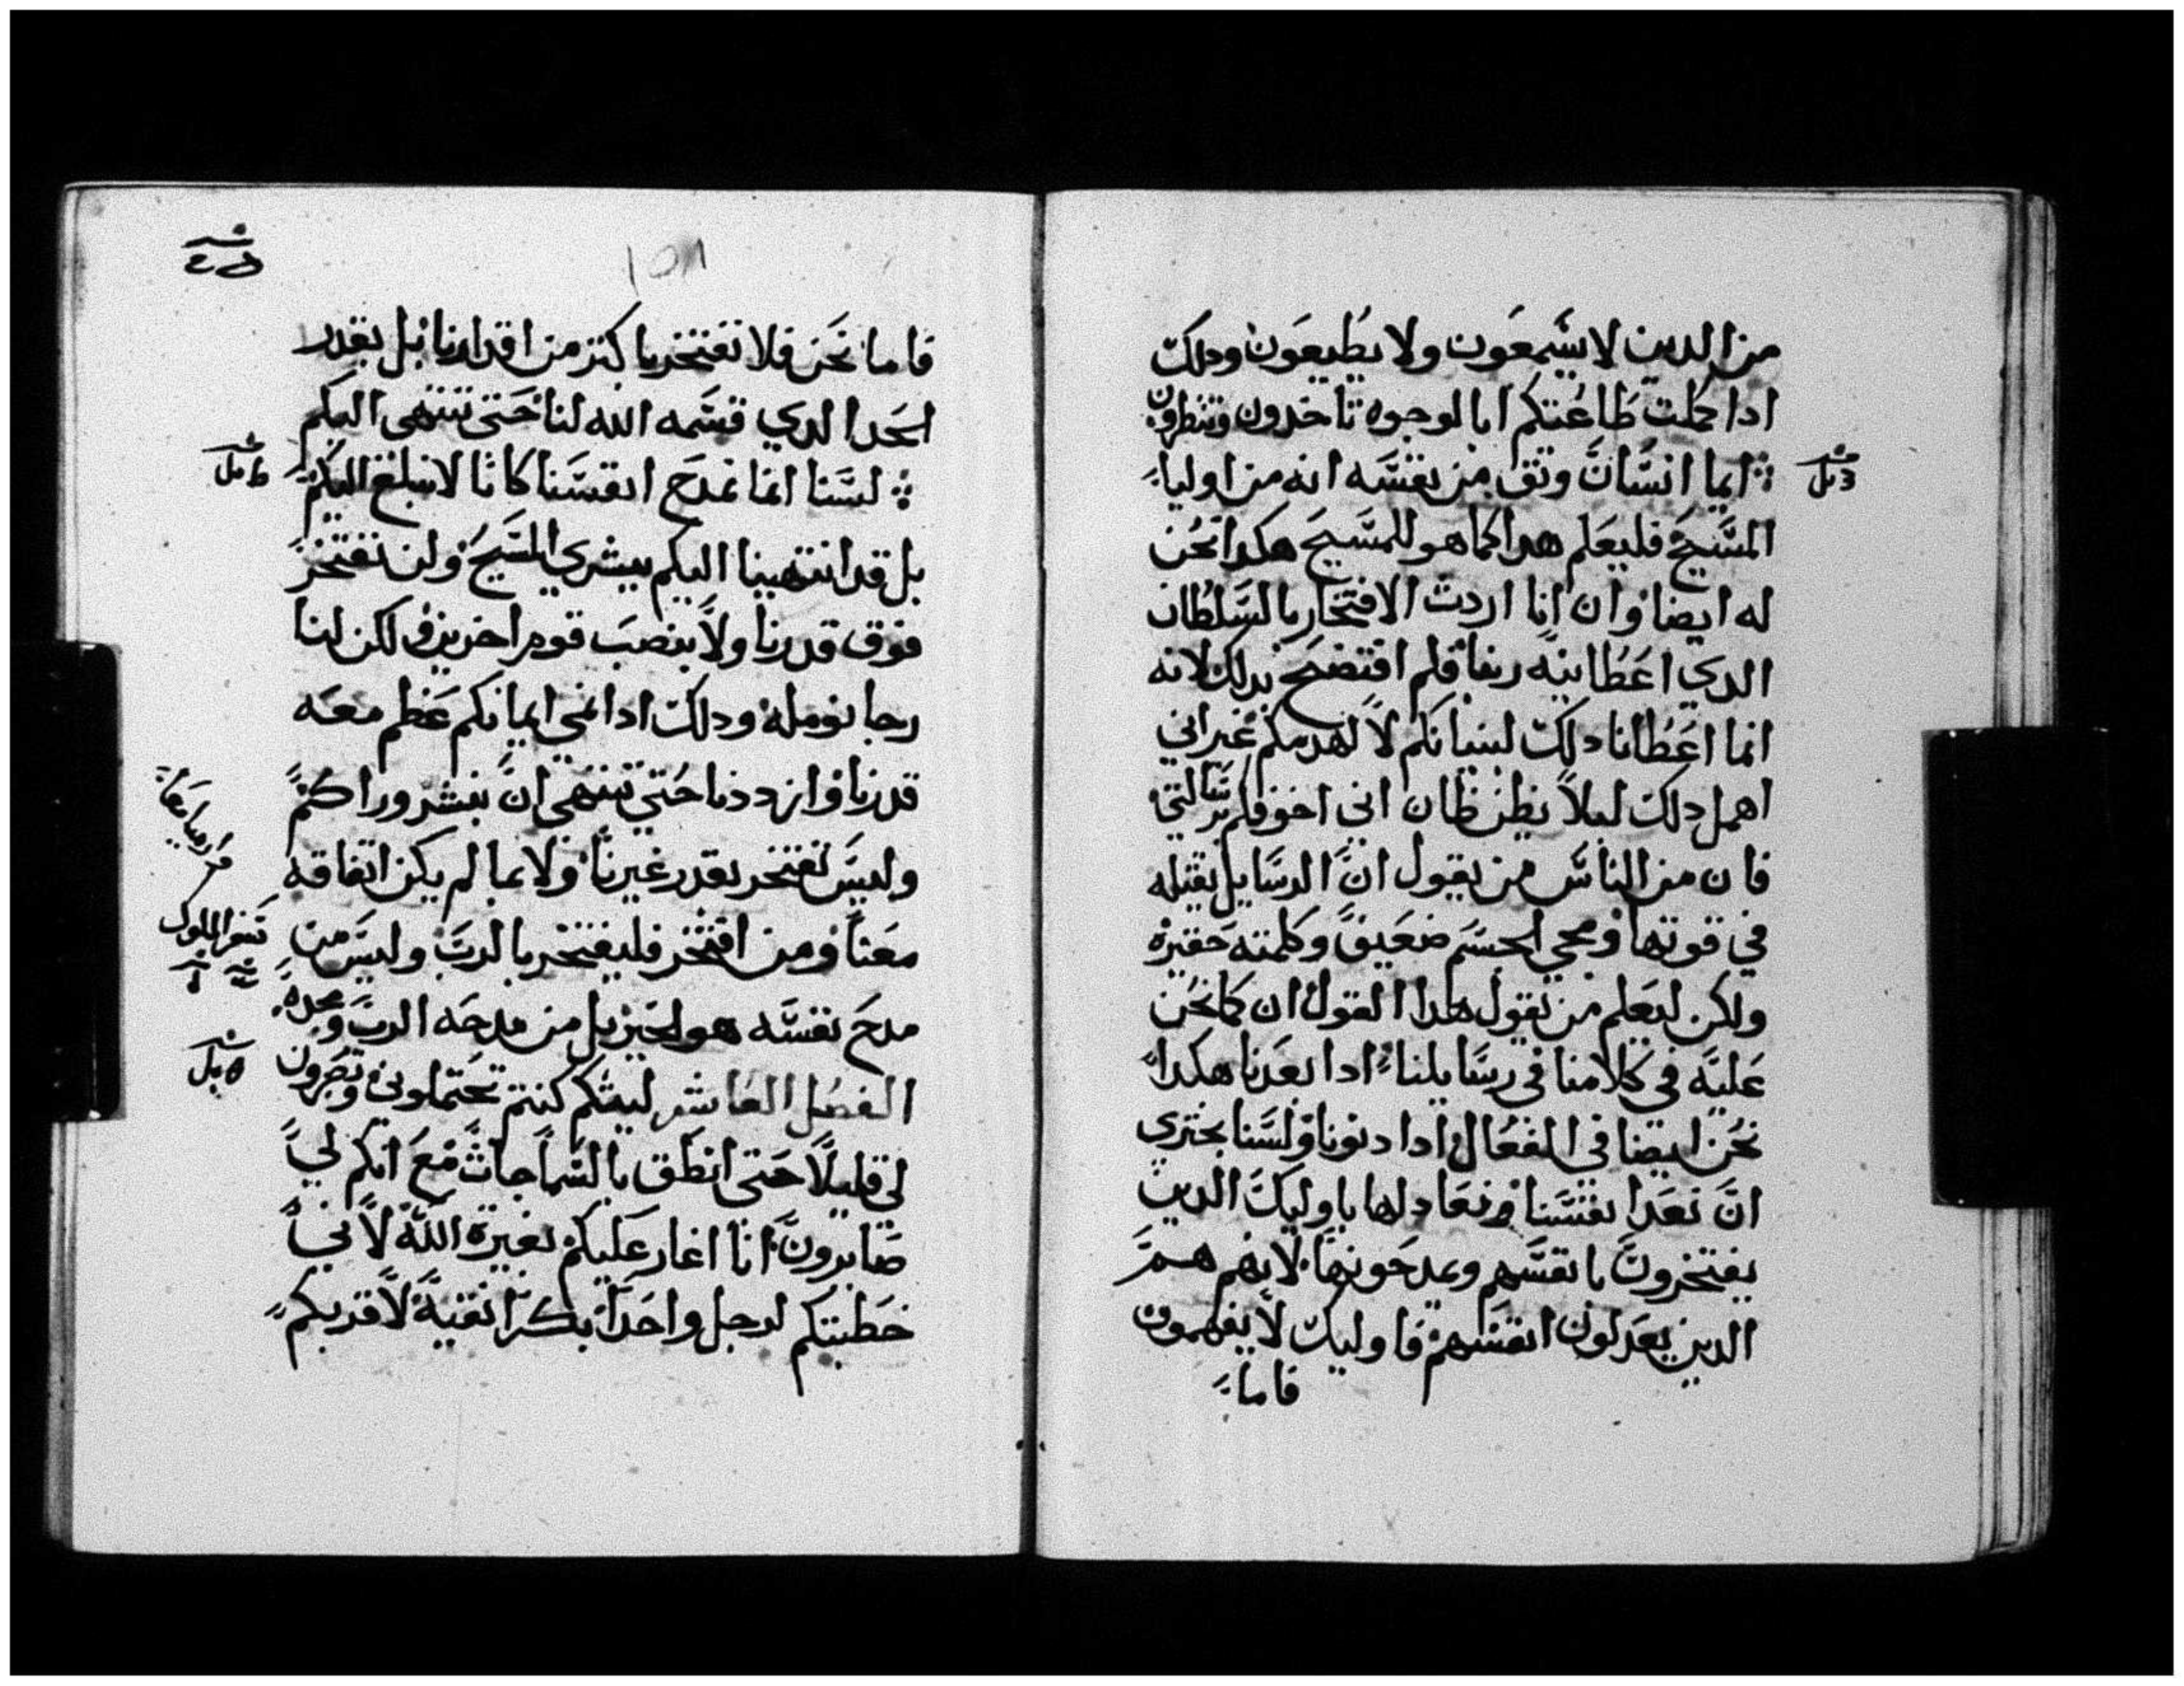 من الدين لا يسمعون ولا يطيعون ودلك
ادا كملت طاعتكم ابا لوجوه تاخدون وتنظرون
ايما انسان وتق من نفسه انه من اوليا
المسيح فليعلم هدا كما هو للمسيح هكدا نحن
له ايضا وان انا اردت الافتخار بالسلطان
الدي اعطانيه ربنا فلم افتضح بدلك لانه
انما اعطانا دلك لبنيانكم لا لهدمكم غير اني
اهمل دلك ليلا يظن ظان اني اخوفكم برسالتي
فان من الناس من يقول ان الرسايل تقيله
في قوتها ومجي الجسم ضعيف وكلمته حقيره
ولكن ليعلم من يقول هدا القول ان كما نحن
عليه في كلامنا في رسايلنا ادا بعدنا هكدا
نحن ايضا في الفعال ادا دنونا ولسنا نجتري
ان نعد انفسنا ونعادلها باوليك الدين
يفتخرون بانفسهم ويمدحونها لانهم هم
الدين يعدلون انفسهم فاوليك لا يفهمون
فاما
١٥٨
فاما نحن فلا نفتخر باكتر من اقدارنا بل بقدر
الحد الدي قسمه الله لنا حتى ننتهى اليكم
لسنا انما نمدح انفسنا كانا لا نبلغ اليكم
بل قد انتهينا اليكم ببشري المسيح ولن نفتخر
فوق قدرنا ولا بنصب قوم اخرين لكن لنا
رجا نومله ودلك ادا نمي ايمانكم عظم معه
قدرنا وازددنا حتي ننتهى ان نبشر وراكم
وليس نفتخر بقدر غيرنا ولا بما لم يكن اتفاقه
معنا ومن افتخر فليفتخر بالرب وليس من
مدح نفسه هو الخير بل من مدحه الرب ومجده
الفصل العاشر ليتكم كنتم تحتملوني وتصبرون
لي قليلا حتى انطق بالسماجات مع انكم لي
صابرون انا اغار عليكم بغيرة الله لاني
خطبتكم لرجل واحد بكرا نقية لاقربكم
سفر الملوك